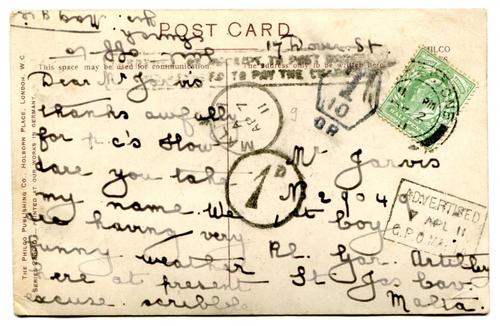 POST CARD
This space may be used for communication
The address only to be written here.
THE PHILCO PUBLISHING CO., HOLBORN PLACE, LONDON, W.C.
PRINTED AT OUR WORKS IN GERMANY
PHILCO
17 Dover St.
Dear Mr Jarvis
thanks awfully
for p.c's How
dare you take
my name. We
are having very
funny weather
here at present
excuse scribble
Mr Jarvis
N 29040
Boy
Rl. Gar. Artillery
St Jas Cav.
Malta.
TO PAY THE
MALTA
AP 7
11
1D
10
ADVERTISED
APL 11
G.P.O. MALTA